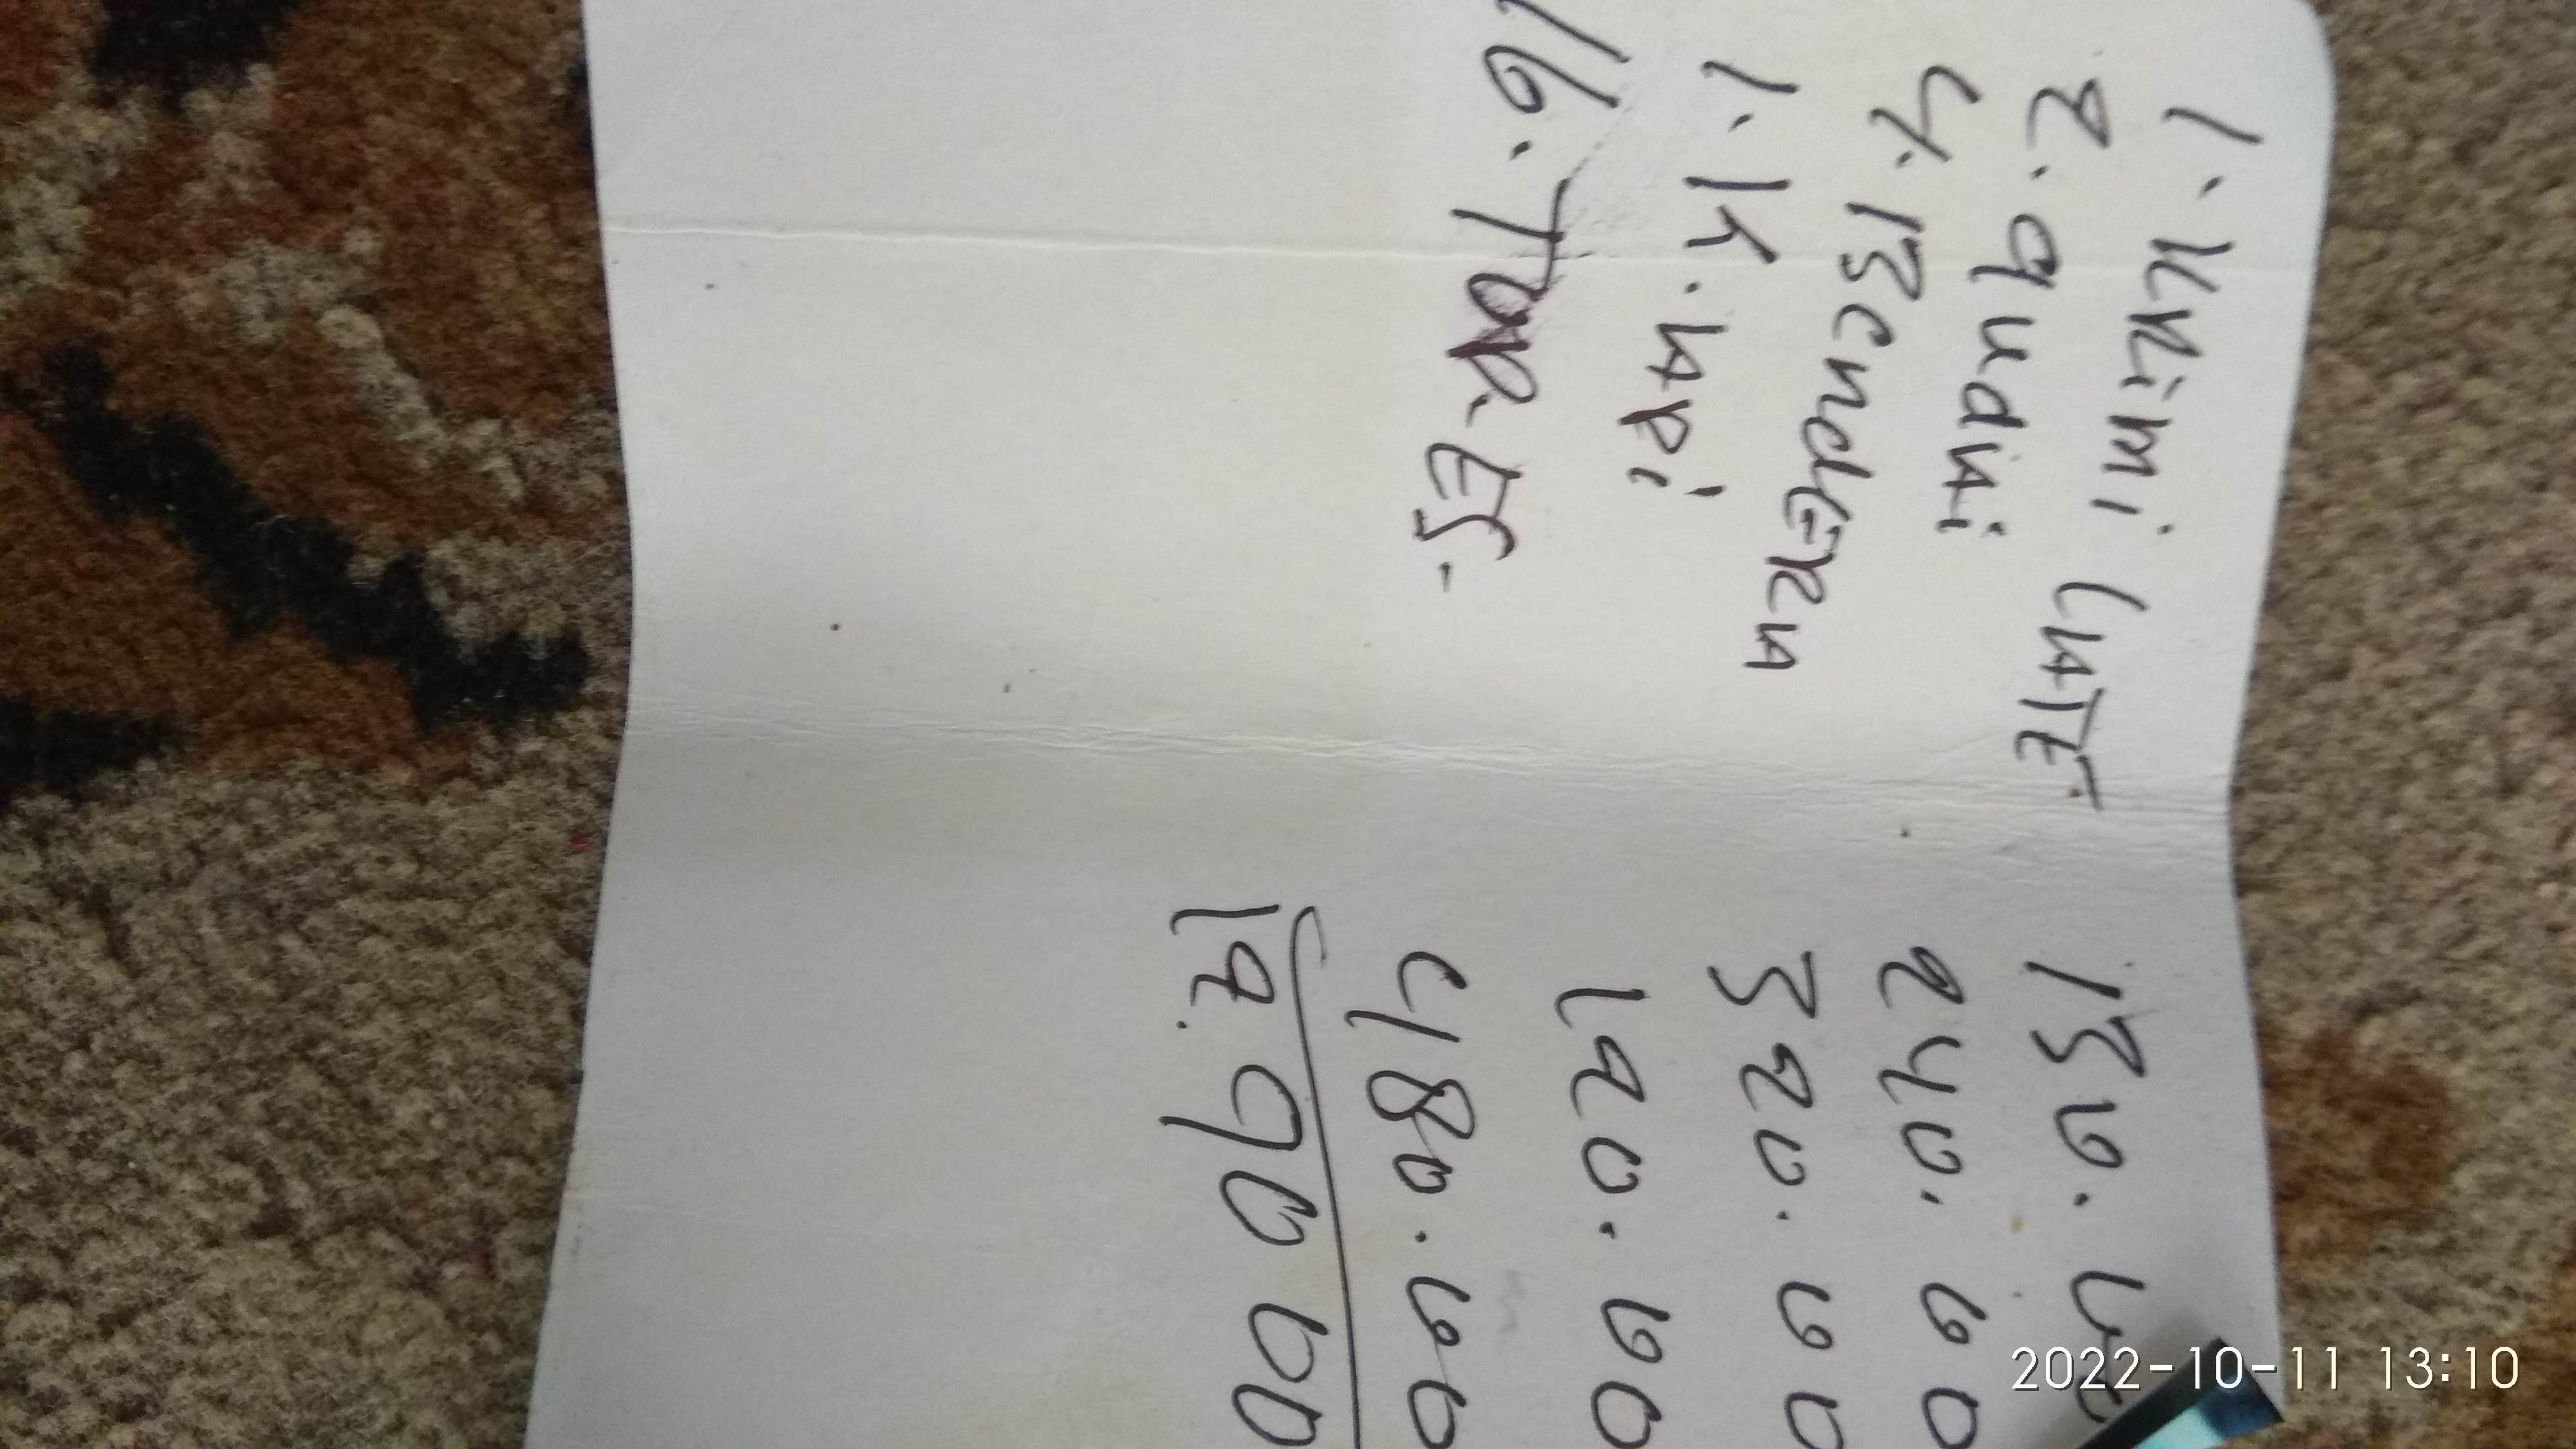 1. KRimi LATE. 130.
2. qudiAi 240.00
4. BEndERA 320.00
1. K. APi 120.00
16. TORES. 480.00
12.90 00
2022-10-11 13:10